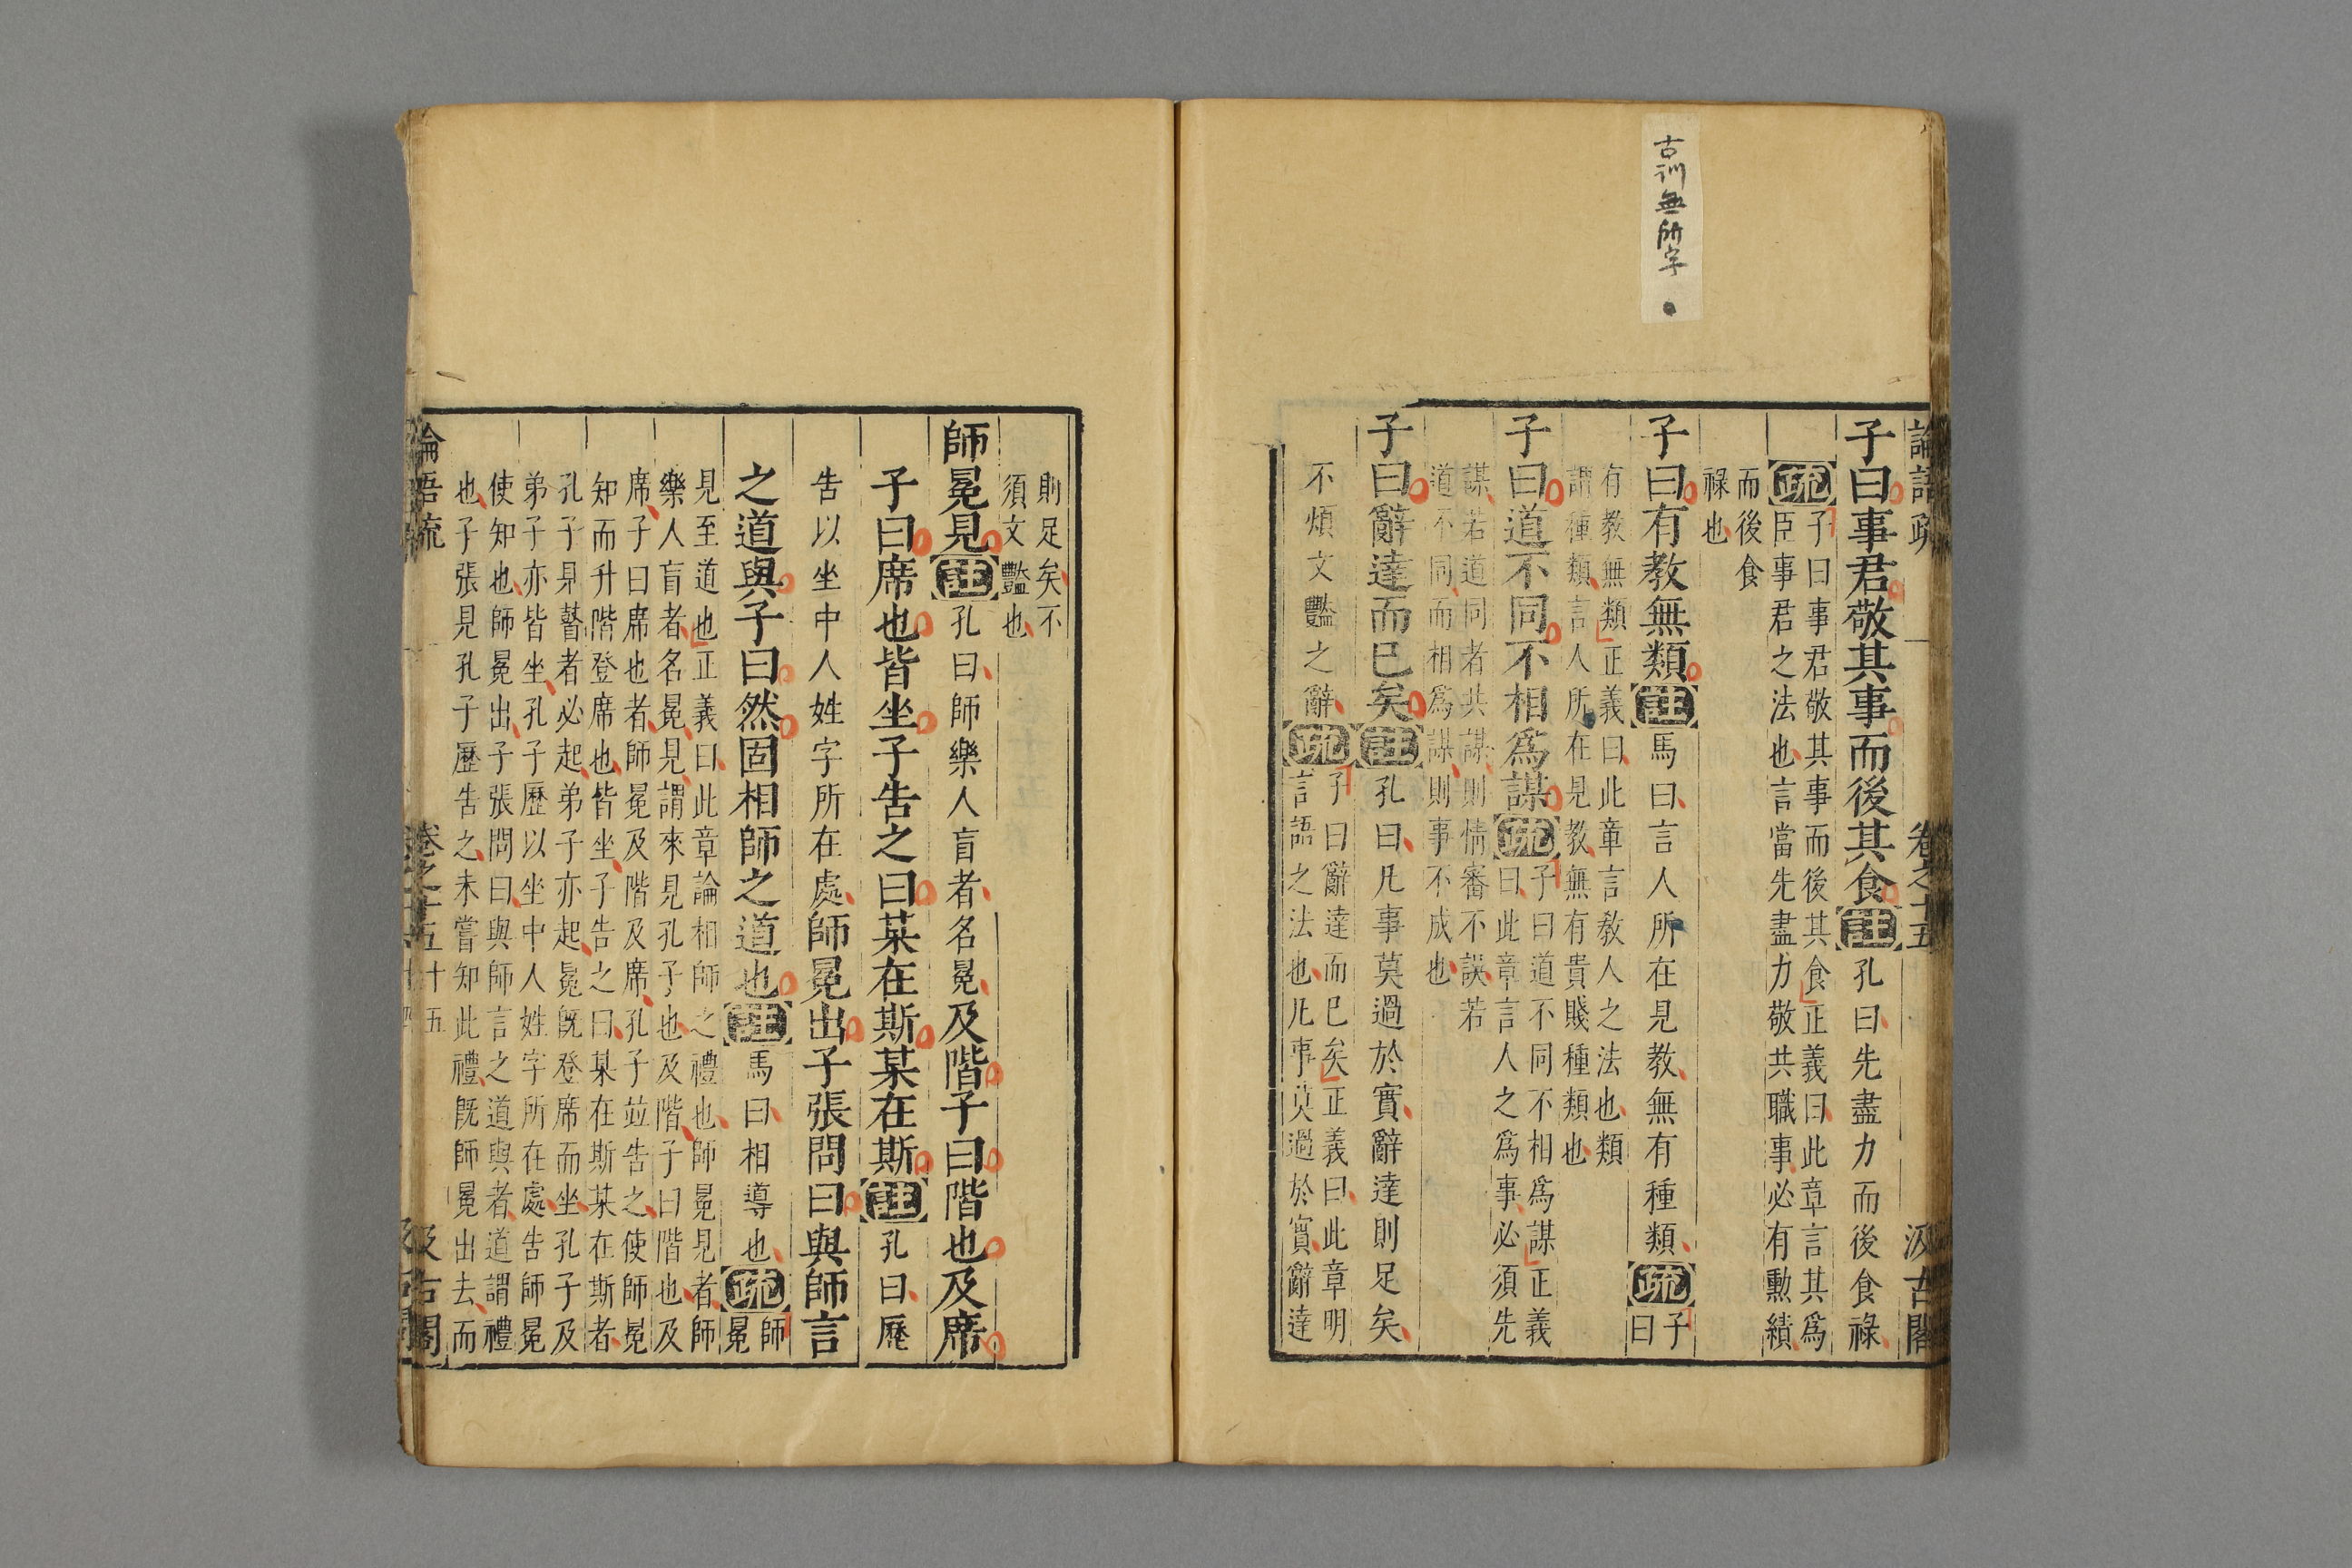 古訓無所字
論語疏 卷之十五 汲古閣
子曰事君敬其事而後其食註孔曰先盡力而後食祿
疏子曰事君敬其事而後其食正義曰此章言其爲
臣事君之法也言當先盡力敬共職事必有勳績
而後食
祿也
子曰有教無類註馬曰言人所在見教無有種類疏子
曰
有教無類正義曰此章言教人之法也類
謂種類言人所在見教無有貴賤種類也
子曰道不同不相爲謀疏子曰道不同不相爲謀正義
曰此章言人之爲事必須先
謀若道同者共謀則情審不誤若
道不同而相爲謀則事不成也
子曰辭達而已矣註孔曰凡事莫過於實辭達則足矣
不煩文豔之辭疏子曰辭達而已矣正義曰此章明
言語之法也凡事莫過於實辭達
則足矣不
須文豔也
師冕見註孔曰師樂人盲者名冕及階子曰階也及席
子曰席也皆坐子告之曰某在斯某在斯註孔曰歷
告以坐中人姓字所在處師冕出子張問曰與師言
之道與子曰然固相師之道也註馬曰相導也疏師
冕
見至道也正義曰此章論相師之禮也師冕見者師
樂人盲者名冕見謂來見孔子也及階子曰階也及
席子曰席也者師冕及階及席孔子並告之使師冕
知而升階登席也皆坐子告之曰某在斯某在斯者
孔子見瞽者必起弟子亦起冕旣登席而坐孔子及
弟子亦皆坐孔子歷以坐中人姓字所在處告師冕
使知也師冕出子張問曰與師言之道與者道謂禮
也子張見孔子歷告之未嘗知此禮旣師冕出去而
論語疏 卷之十五 十五 汲古閣